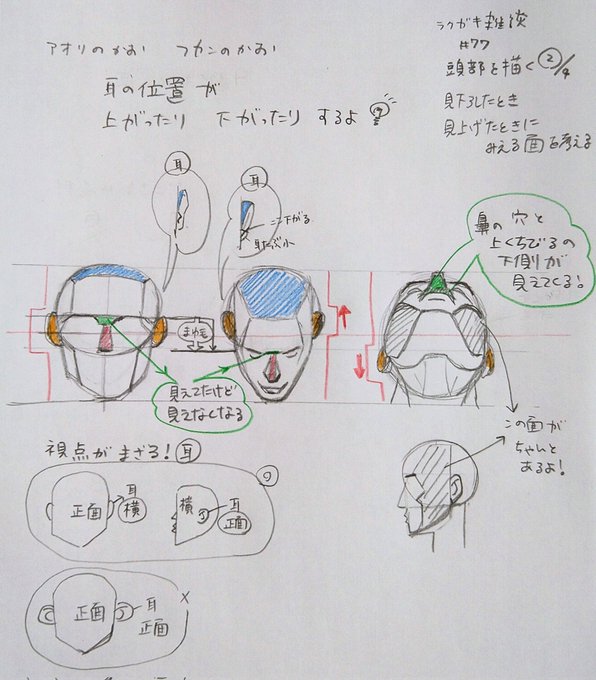 ラクガキ雑談
#77
頭部を描く②/4
見下ろしたとき
見上げたときに
みえる面を考える
アオリのかお フカンのかお
耳の位置が
上がったり 下がったりするよ
耳
耳
ここ下がる
耳たぶ小
鼻の穴と
上くちびるの
下側が
見えてくる!
まゆ毛
見えてたけど
見えなくなる
この面が
ちゃんと
あるよ!
視点がまざる!耳
正面
耳
横
横
耳
正面
正面
耳
正面